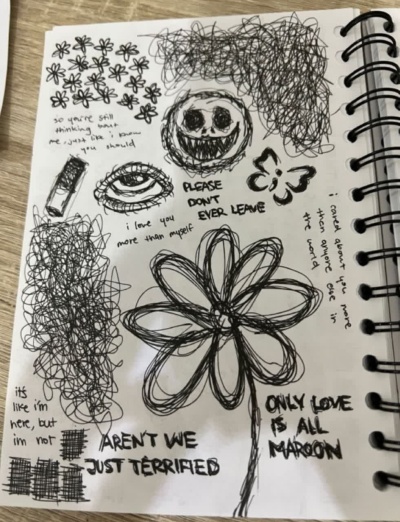 so you're still
thinking bout
me, just like i know
you should
PLEASE
DON'T
EVER LEAVE
i love you
more than myself
i cared about you more
then anyone else in
the world
it's
like i'm
here, but
im not
AREN'T WE
JUST TERRIFIED
ONLY LOVE
IS ALL
MAROON